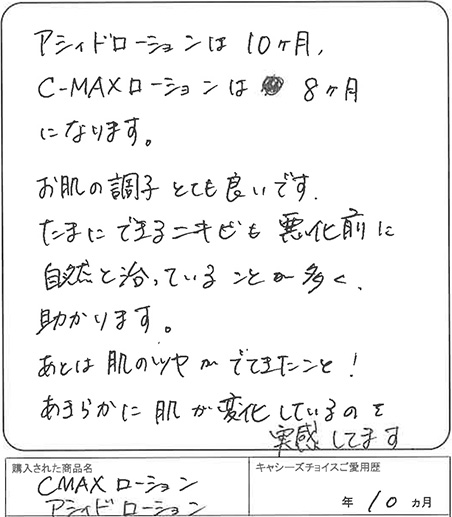 アシィドローションは10ヶ月,
C-MAXローションは 8ヶ月
になります。
お肌の調子とても良いです.
たまにできるニキビも悪化前に
自然と治っていることが多く、
助かります。
あとは肌のツヤがでてきたこと!
あきらかに肌が変化しているのを
実感してます
購入された商品名
CMAXローション
アシィドローション
キャシーズチョイスご愛用歴
年 10 カ月